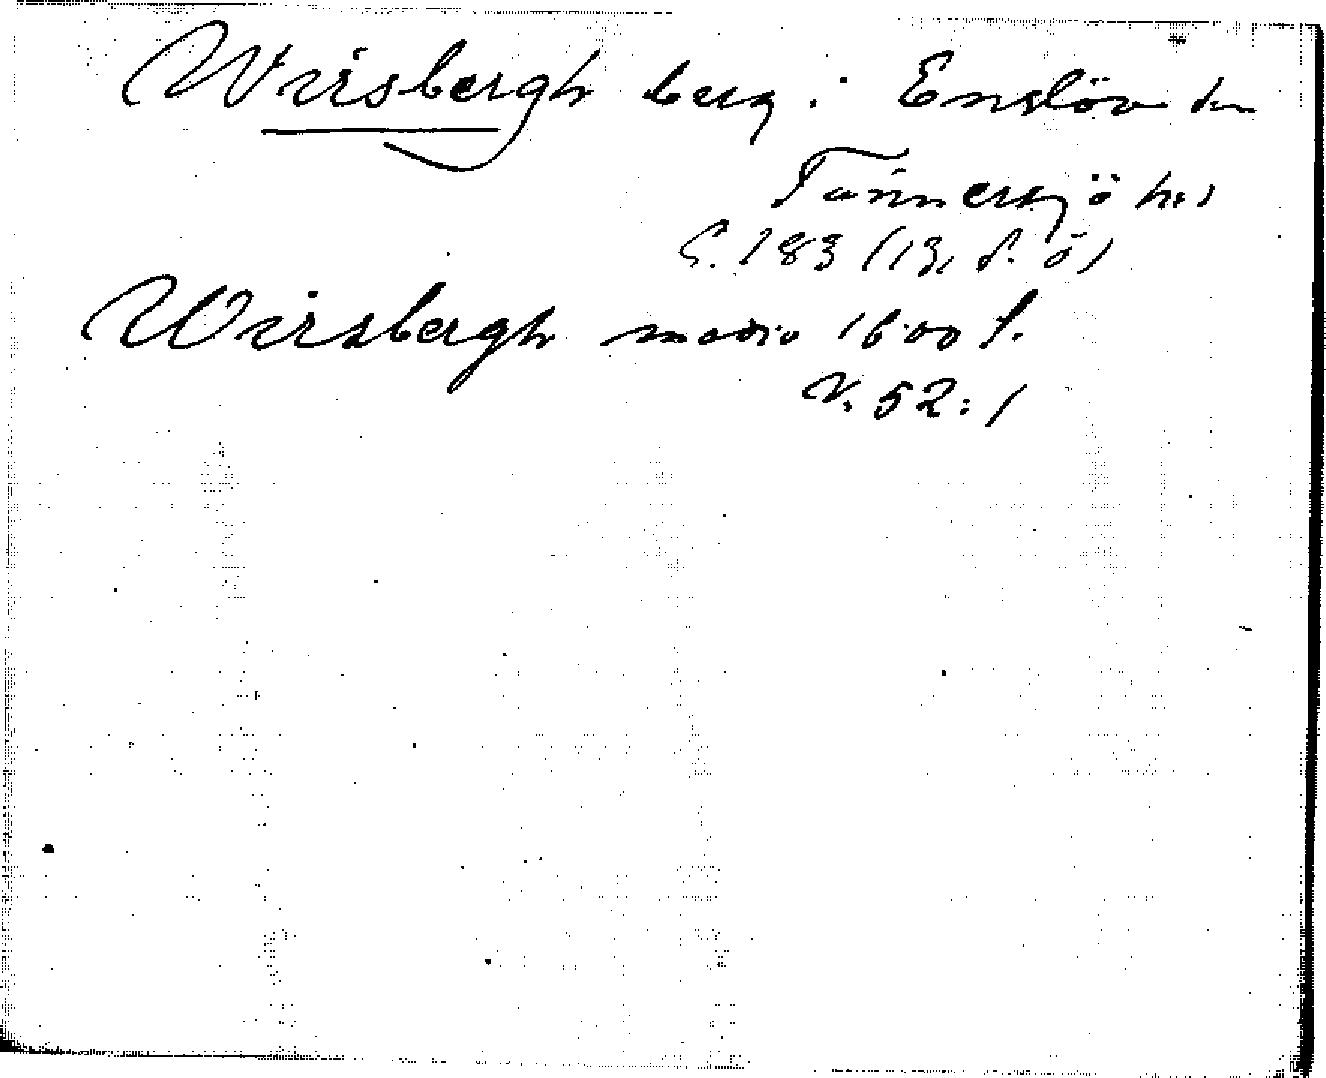 Wirsbergh berg i Enslöv sn
Tönnersjö hd
S. 183 (13, f. ö)
Wirsbergh medio 1600 t.
V. 52:1